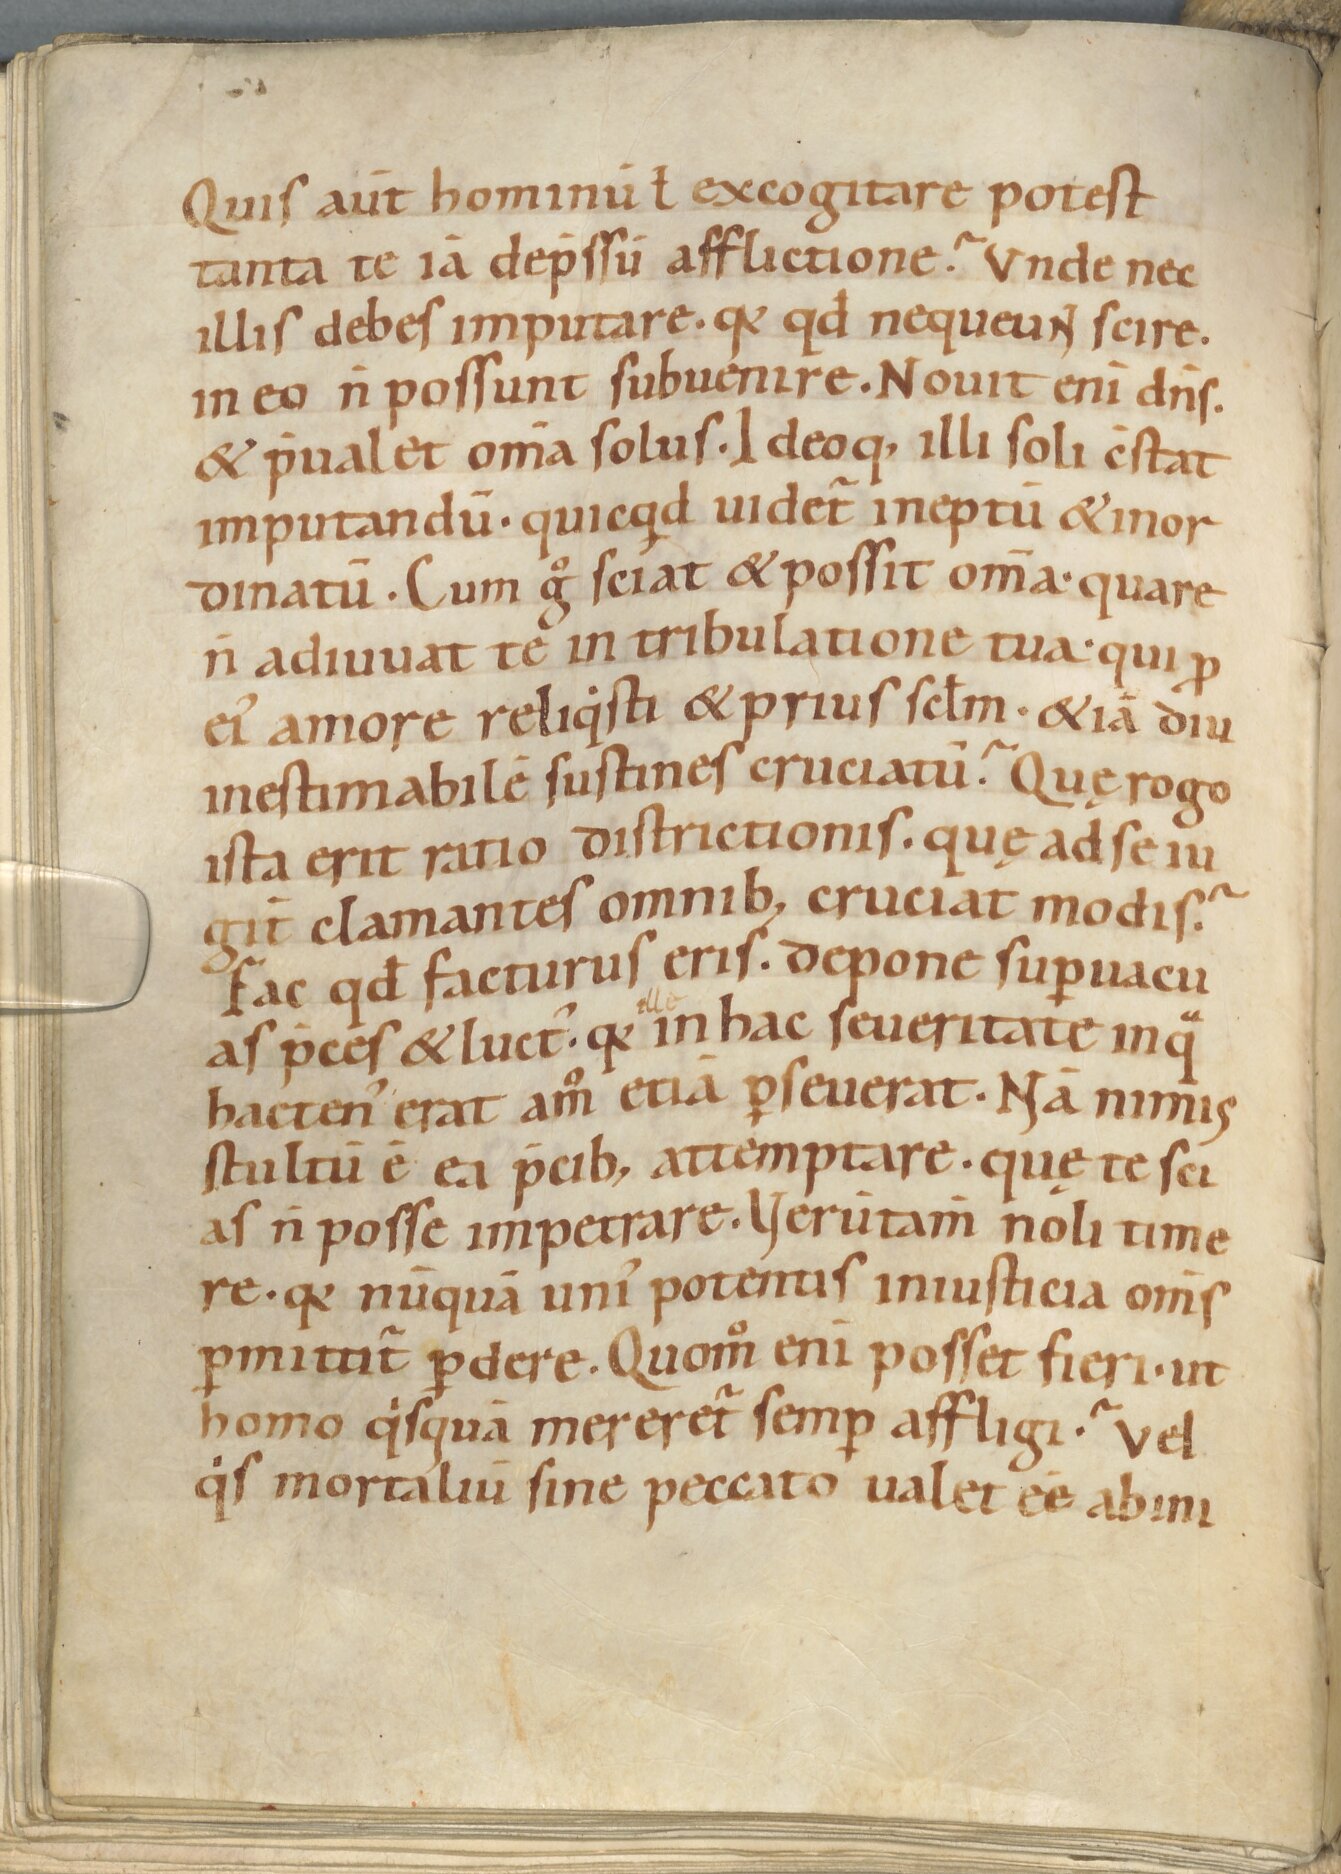 Quis aūt hominū ł excogitare potest
tanta te iā dep̄ssū afflictione? Vnde nec
illis debes imputare. qꝛ qđ nequeunt scire.
in eo n̄ possunt subuenire. Nouit enī dn̄s.
& p̄ualet om̄a solus. Ideoq; illi soli c̄stat
imputandū. quicqd uidet̃ ineptū & inor
dinatū. Cum gͦ sciat & possit om̄a. quare
n̄ adiuuat te in tribulatione tua. qui ꝓ
ei᾽ amore reliqͥsti & prius scl̄m. & iā diu
inestimabilē sustines cruciatū? Quę rogo
ista erit ratio districtionis. quę ad se iu
git̄ clamantes omnib; cruciat modis?
Fac qđ facturus eris. depone sup̱uacu
as p̄ces & luct᾽. qꝛ illo in hac seueritate in qͣ
hacten᾽ erat am̊ etiā ꝑseuerat. Nā nimis
stultū ē ea p̄cib; attemptare. quę te sci
as n̄ posse impetrare. Verūtam̄ noli time
re. qꝛ nūquā uni᾽ potentis iniusticia om̄s
ꝑmittit̃ ꝑdere. Quom̊ enī posset fieri. ut
homo qͥsquā mereret̃ semꝑ affligi? Vel
qͥs mortaliū sine peccato ualet ēē ab ini